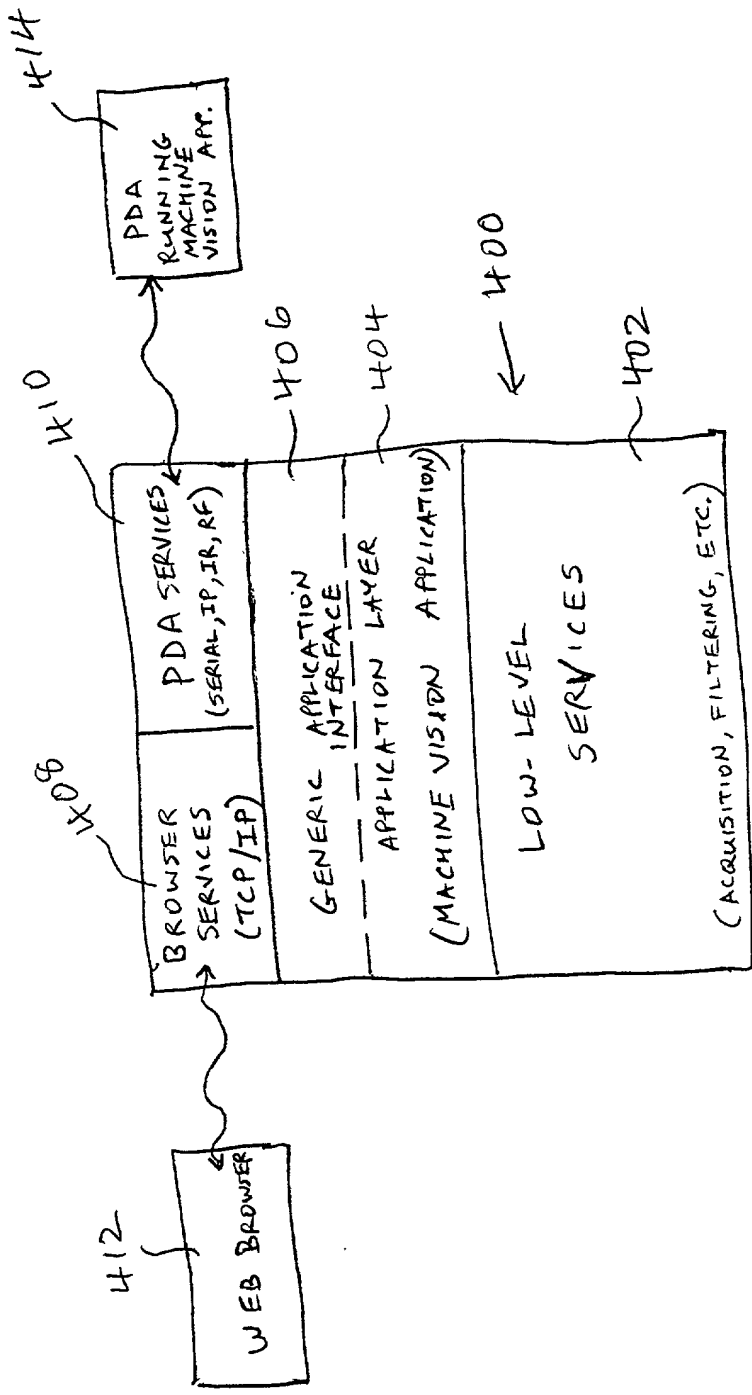 412
WEB BROWSER
408
BROWSER
SERVICES
(TCP/IP)
410
PDA SERVICES
(SERIAL, IP, IR, RF)
414
PDA
RUNNING
MACHINE
VISION APP.
GENERIC APPLICATION
INTERFACE
406
APPLICATION LAYER
(MACHINE VISION APPLICATION)
404
400
LOW-LEVEL
SERVICES
(ACQUISITION, FILTERING, ETC.)
402